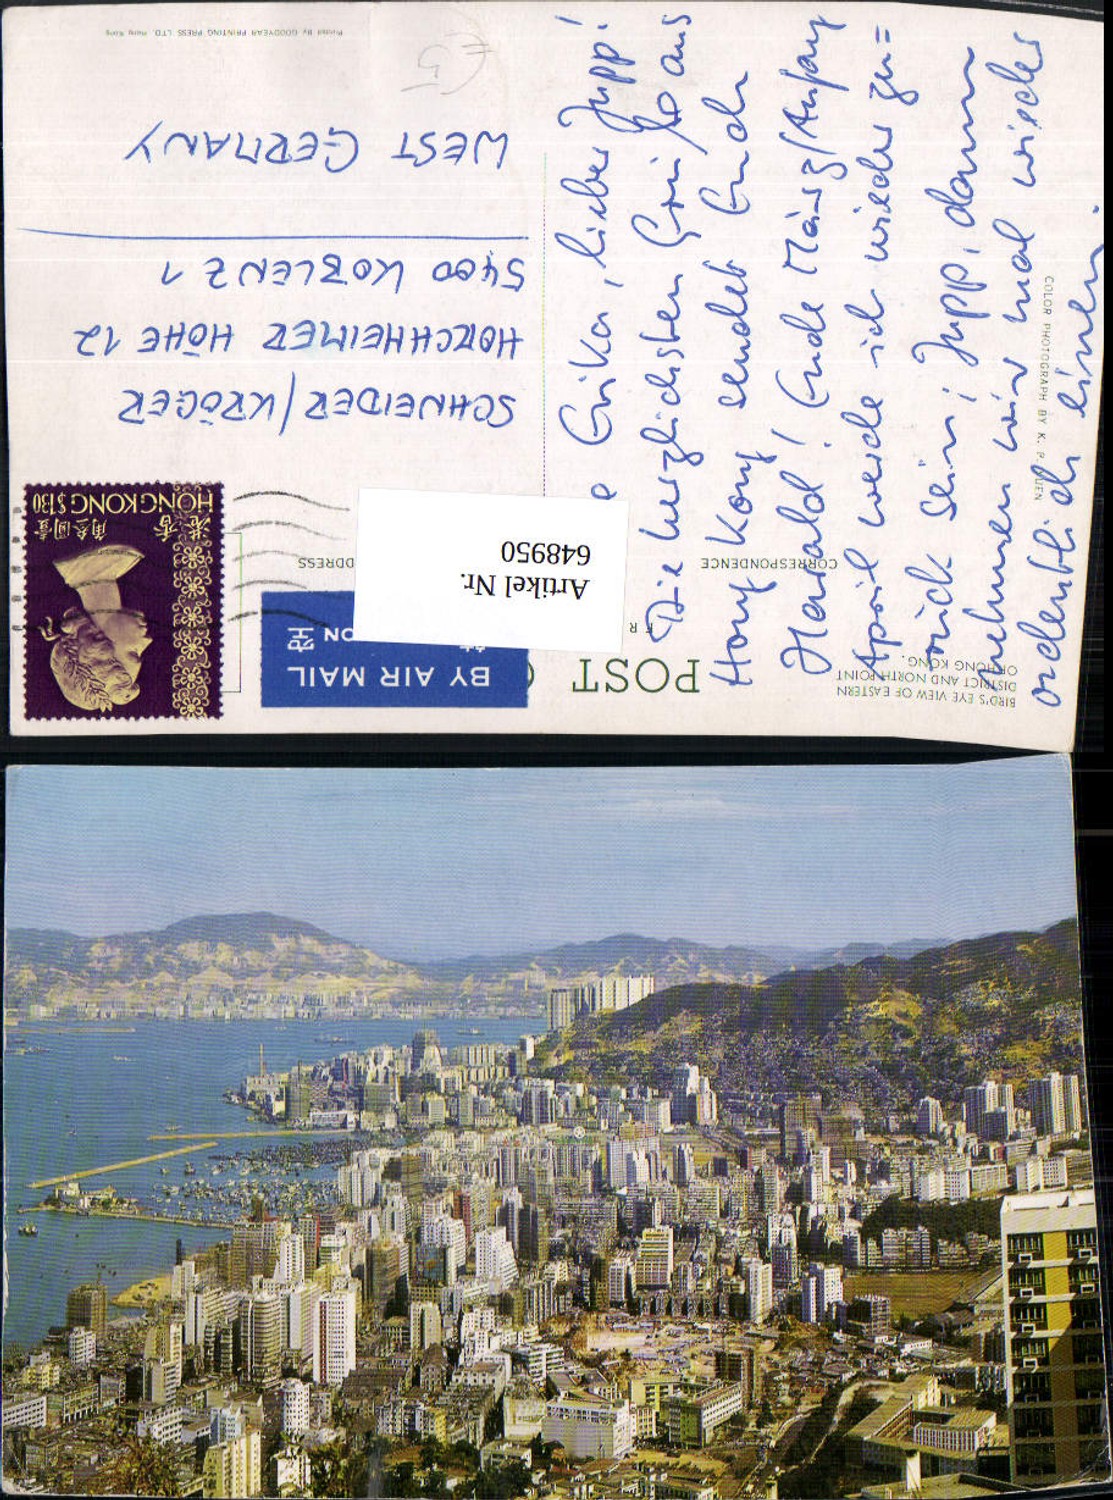 BIRD'S EYE VIEW OF EASTERN
DISTRICT AND NORTH POINT
OF HONG KONG.
POST
BY AIR MAIL
空
ON
CORRESPONDENCE
ADDRESS
Artikel Nr.
648950
香港
壹圓叁角
HONG KONG $1.30
SCHNEIDER/KRÖGER
HORCHHEIMER HÖHE 12
5400 KOBLENZ 1
WEST GERMANY
Printed By GOODYEAR PRINTING PRESS LTD. Hong Kong
COLOR PHOTOGRAPH BY K. P.
e Erika, lieber Jupp!
Die herzlichsten Grüße aus
Hong Kong sendet Euch
Harald! Ende März/Anfang
April werde ich wieder zu=
rück sein; Jupp, dann
nehmen wir mal wieder
ordentlich einen.